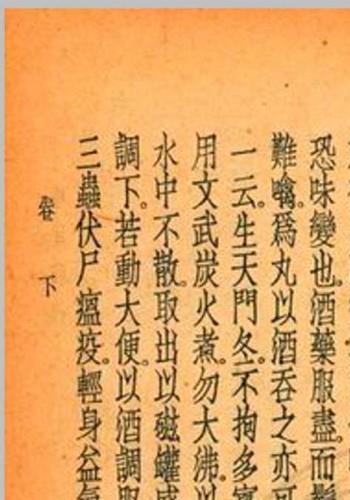 恐味變也。酒藥服盡。而
難噙。爲丸以酒吞之亦可
一云。生天門冬。不拘多寡
用文武炭火煮。勿大沸。以
水中不散。取出以磁罐盛
調下。若動大便。以酒調服
三蟲伏尸瘟疫。輕身益氣
卷下